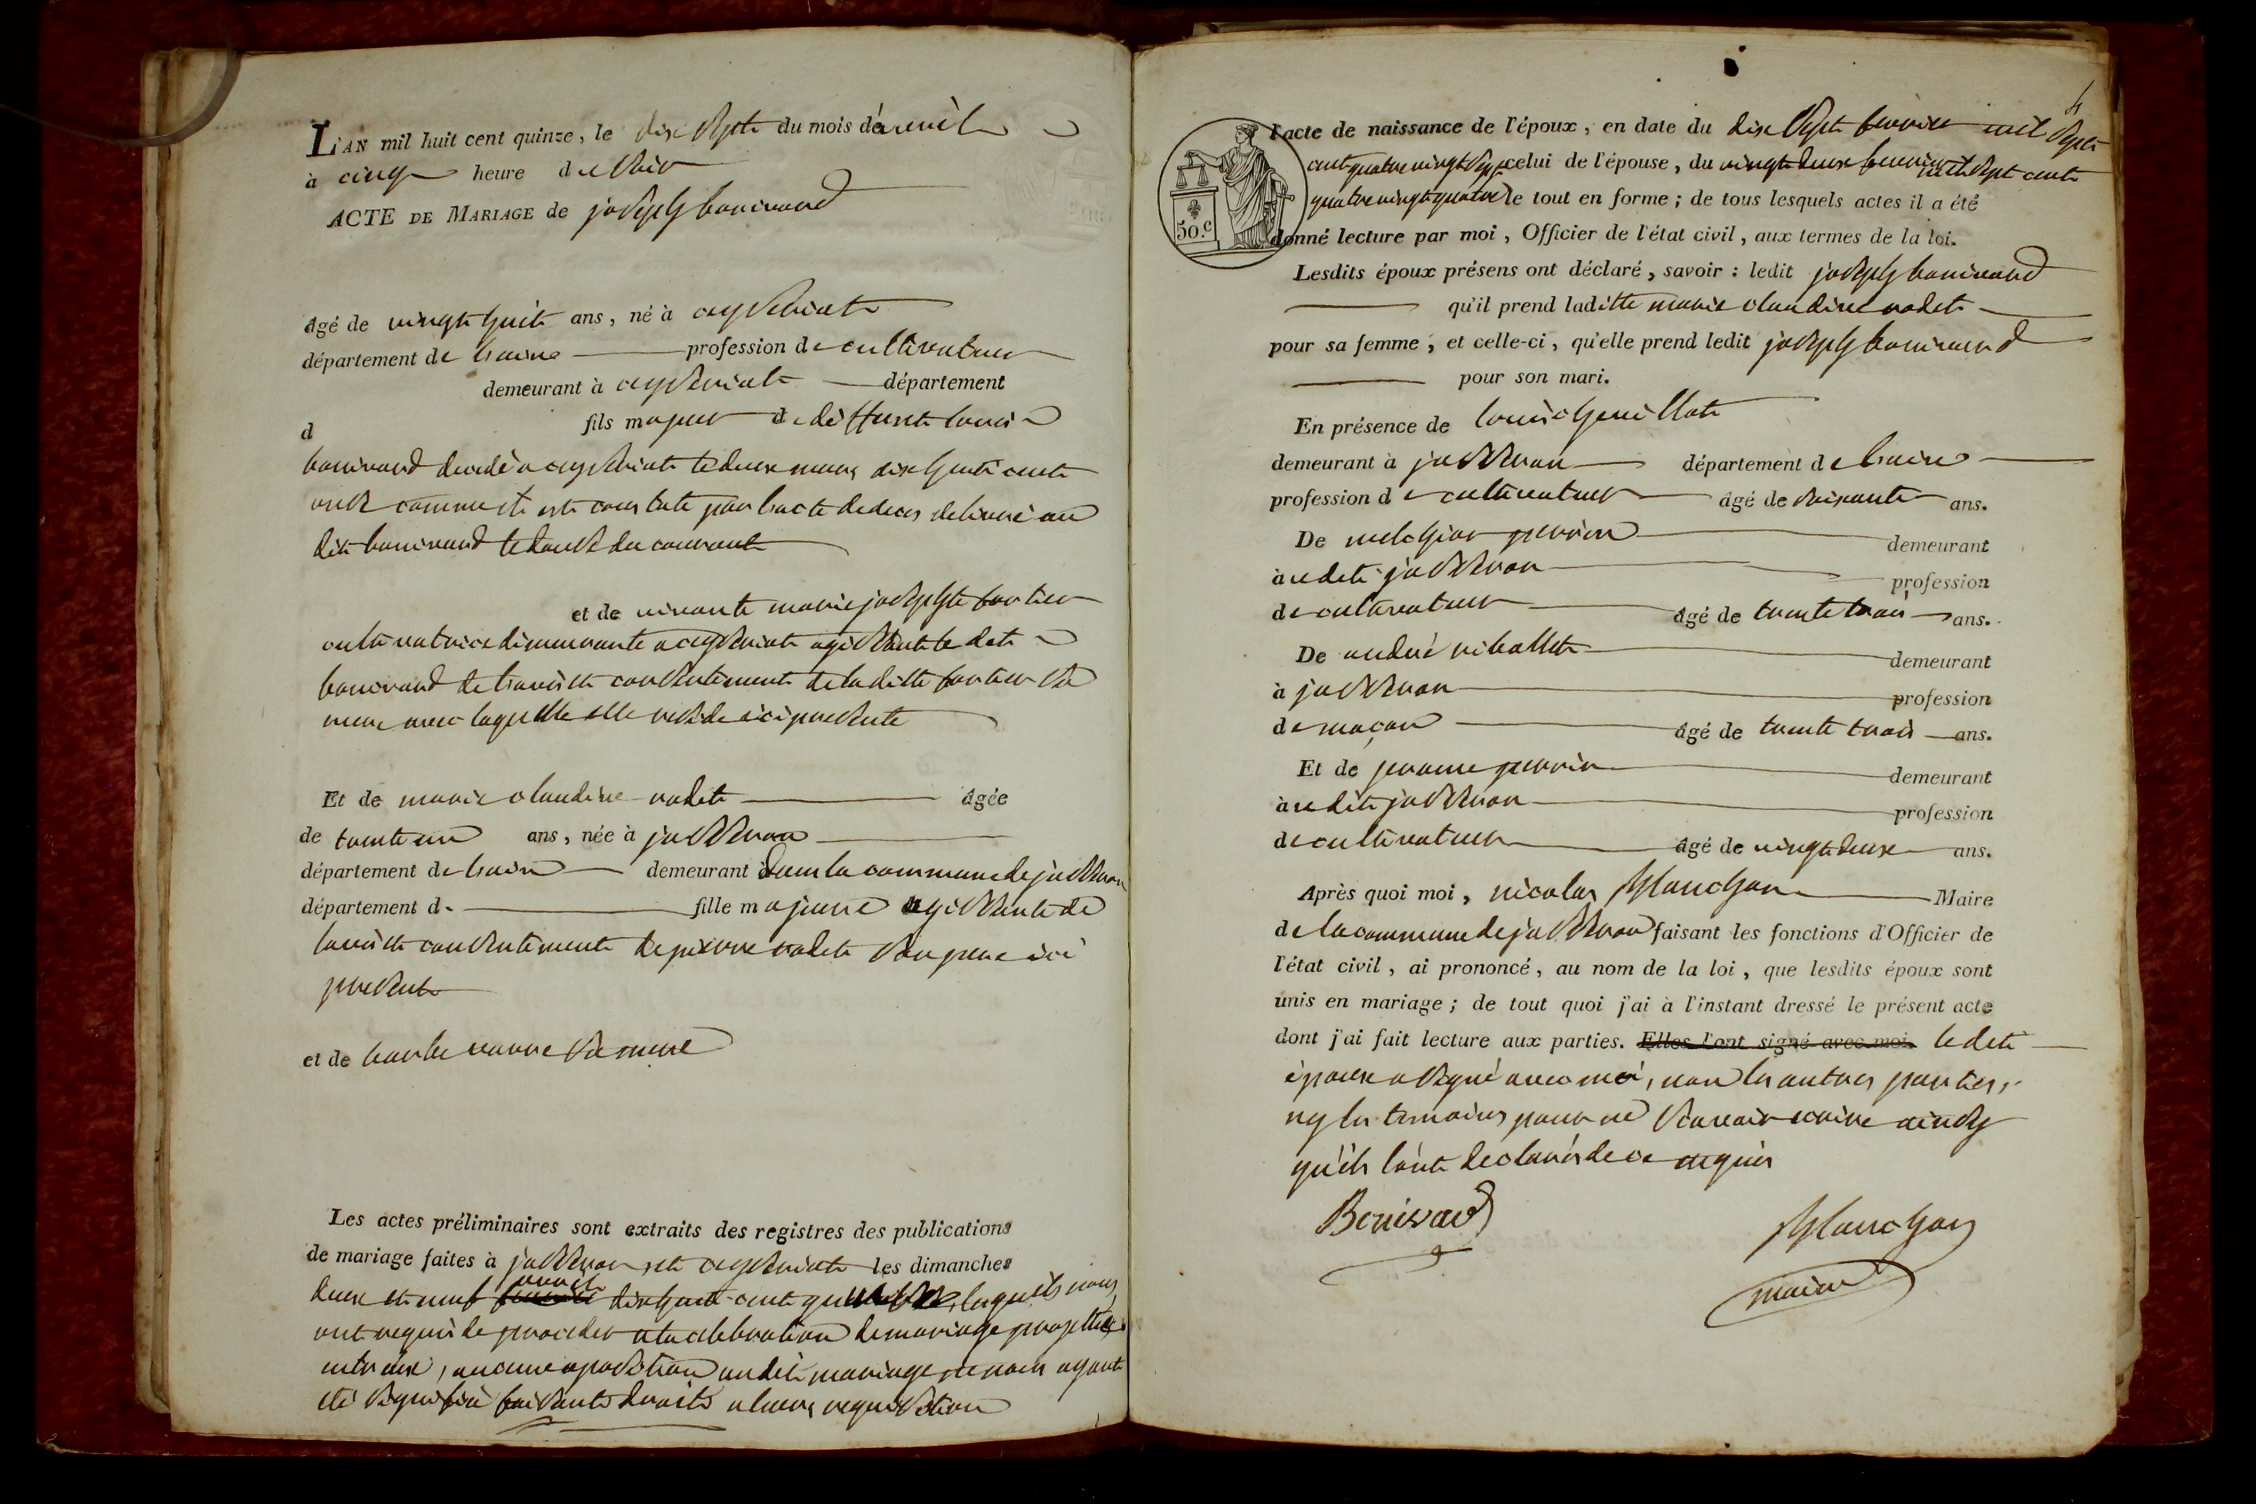 L'AN mil huit cent quinze, le dix sept du mois d'avril
à cinq heure de soir
ACTE DE MARIAGE de joseph bouivard
âgé de vingt huit ans, né à ceyseriat
département de l'ain profession de cultivateur
demeurant à ceyseriat département
d fils majeur de deffunt louis
bouivard decedé a ceyseriat le deux mars dix huit cent
onze comme il est constaté par l'acte de deces delivré au
dit bouivard le douze du courant
et de vivante marie josephte fortier
cultivatrice dimeurante a ceyseriat agissant le dit
bouivard de l'avis et consentement de la ditte fortier sa
mere avec laquelle elle reside ici presente
Et de marie claudine rodet âgée
de trente un ans, née à jasseron
département de l'ain demeurant dans la commune de jasseron
département d fille majeure agissante de
l'avis et consentement de pierre rodet son pere ici
present
et de barbe sa mere
Les actes préliminaires sont extraits des registres des publications
de mariage faites à jasseron, et ceyseriat les dimanches
deux et neuf avril dix huit cent quinze, lesquels nous
ont requis de proceder a la celebration de mariage projetté
entr'eux, aucune oposition audit mariage ne nous ayant
été signifié faisant droits a leurs requisition
l'acte de naissance de l'époux, en date du dix sept fevrier mil sept
cent quatre vingt sept celui de l'épouse, du vingt deux fevrier mil sept cent
quatre vingt quatre le tout en forme; de tous lesquels actes il a été
donné lecture par moi, Officier de l'état civil, aux termes de la loi.
50.c
Lesdits époux présens ont déclaré, savoir: ledit joseph bouivard
qu'il prend laditte marie claudine rodet
pour sa femme, et celle-ci, qu'elle prend ledit joseph bouivard
pour son mari.
En présence de louis
demeurant à jasseron département de l'ain
profession de cultivateur âgé de soixante ans.
De melchior perrin demeurant
à udit jasseron profession
de cultivateur âgé de trente trois ans.
De andré demeurant
à jasseron profession
de maçon âgé de trente trois ans.
Et de jerome perrin demeurant
à udit jasseron profession
de cultivateur âgé de vingt deux ans.
Après quoi moi, nicolas planchon Maire
de la commune de jasseron faisant les fonctions d'Officier de
l'état civil, ai prononcé, au nom de la loi, que lesdits époux sont
unis en mariage; de tout quoi j'ai à l'instant dressé le présent acte
dont j'ai fait lecture aux parties. Elles l'ont signé avec moi. ledit
époux a signé avec moi, non les autres parties,
ny les temoins pour ne scavoir ecrire ainsy
qu'ils l'ont declarés de ce requis
Bouivard
planchon
maire